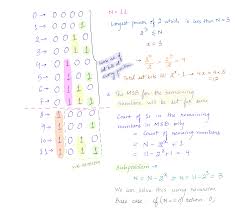 0 → 0 0 0 0
1 → 0 0 0 1
2 → 0 0 1 0
3 → 0 0 1 1
4 → 0 1 0 0
5 → 0 1 0 1
6 → 0 1 1 0
7 → 0 1 1 1
8 → 1 0 0 0
9 → 1 0 0 1
10 → 1 0 1 0
11 → 1 0 1 1
N = 11
Largest power of 2 which is less than N = 3
2^x ≤ N
x = 3
② The MSB for the remaining
numbers will be set for sure
Count of 1s in the remaining
numbers in MSB only
= Count of remaining numbers
= N - 2^x + 1
= 11 - 2^3 + 1 = 4
Subproblem →
N = N - 2^x ⇒ N = 11 - 2^3 = 3
We can solve this using recursion
base case if (N == 0) return 0